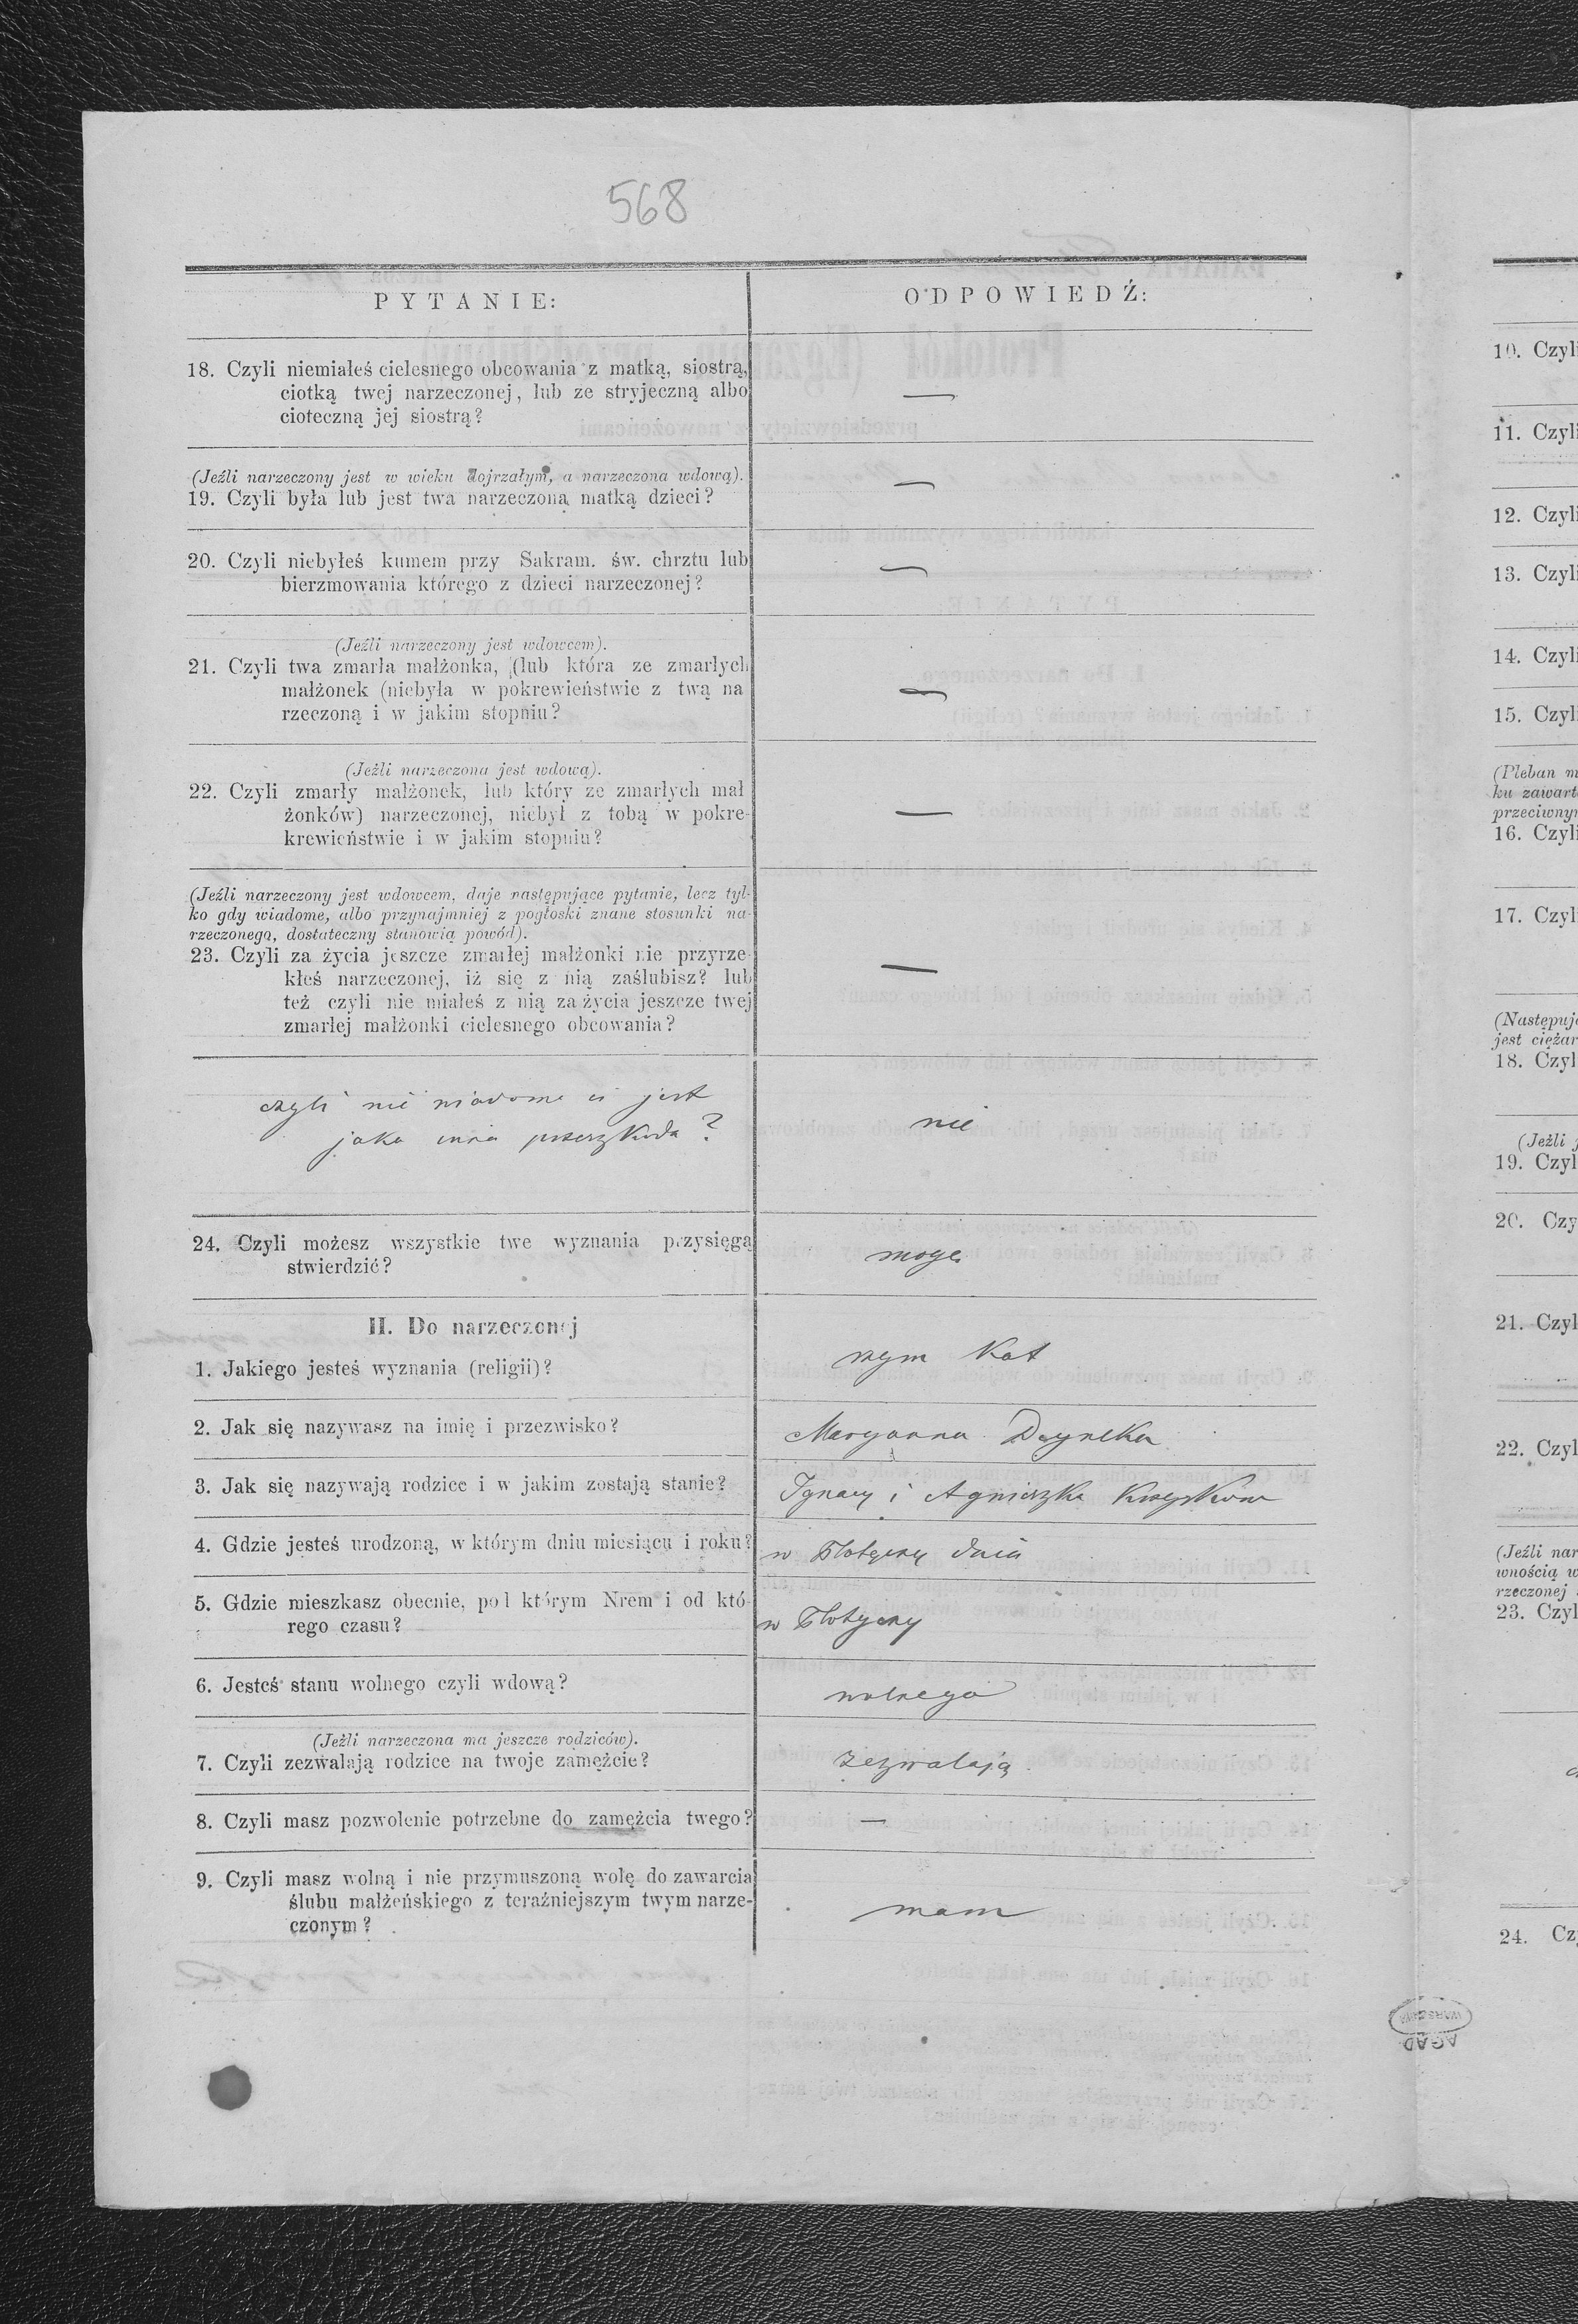 568
PYTANIE:
ODPOWIEDŹ:
18. Czyli niemiałeś cielesnego obcowania z matką, siostrą,
ciotką twej narzeczonej, lub ze stryjeczną albo
cioteczną jej siostrą?
—
(Jeźli narzeczony jest w wieku dojrzałym, a narzeczona wdową).
19. Czyli była lub jest twa narzeczoną matką dzieci?
—
20. Czyli niebyłeś kumem przy Sakram. św. chrztu lub
bierzmowania którego z dzieci narzeczonej?
—
(Jeźli narzeczony jest wdowcem).
21. Czyli twa zmarła małżonka, (lub która ze zmarłych
małżonek (niebyła w pokrewieństwie z twą na
rzeczoną i w jakim stopniu?
—
(Jeźli narzeczona jest wdową).
22. Czyli zmarły małżonek, lub który ze zmarłych mał
żonków) narzeczonej, niebył z tobą w pokre-
krewieństwie i w jakim stopniu?
—
(Jeźli narzeczony jest wdowcem, daje następujące pytanie, lecz tyl-
ko gdy wiadome, albo przynajmniej z pogłoski znane stosunki na-
rzeczonego, dostateczny stanowią powód).
23. Czyli za życia jeszcze zmarłej małżonki nie przyrze-
kłeś narzeczonej, iż się z nią zaślubisz? lub
też czyli nie miałeś z nią za życia jeszcze twej
zmarłej małżonki cielesnego obcowania?
—
czyli nie wiadome ci jest
jaka inna przeszkoda?
nie
24. Czyli możesz wszystkie twe wyznania przysięgą
stwierdzić?
mogę
II. Do narzeczonej
1. Jakiego jesteś wyznania (religii)?
rzym Kat
2. Jak się nazywasz na imię i przezwisko?
Maryanna
3. Jak się nazywają rodzice i w jakim zostają stanie?
Ignacy i Agnieszka
4. Gdzie jesteś urodzoną, w którym dniu miesiącu i roku?
w Płotyczy dnia
5. Gdzie mieszkasz obecnie, pod którym Nrem i od któ-
rego czasu?
w Płotyczy
6. Jesteś stanu wolnego czyli wdową?
wolnego
(Jeźli narzeczona ma jeszcze rodziców).
7. Czyli zezwalają rodzice na twoje zamężcie?
zezwalają
8. Czyli masz pozwolenie potrzebne do zamężcia twego?
—
9. Czyli masz wolną i nie przymuszoną wolę do zawarcia
ślubu małżeńskiego z teraźniejszym twym narze-
czonym?
mam
10. Czyli
11. Czyli
12. Czyli
13. Czyli
14. Czyli
15. Czyli
(Pleban m
ku zawart
przeciwnym
16. Czyli
17. Czyl
(Następuj
jest ciężar
18. Czyl
(Jeźli j
19. Czyl
20. Czy
21. Czyl
22. Czyl
(Jeźli nar
wnością w
rzeczonej
23. Czyl
24. Cz
WARSZAWA
AGAD